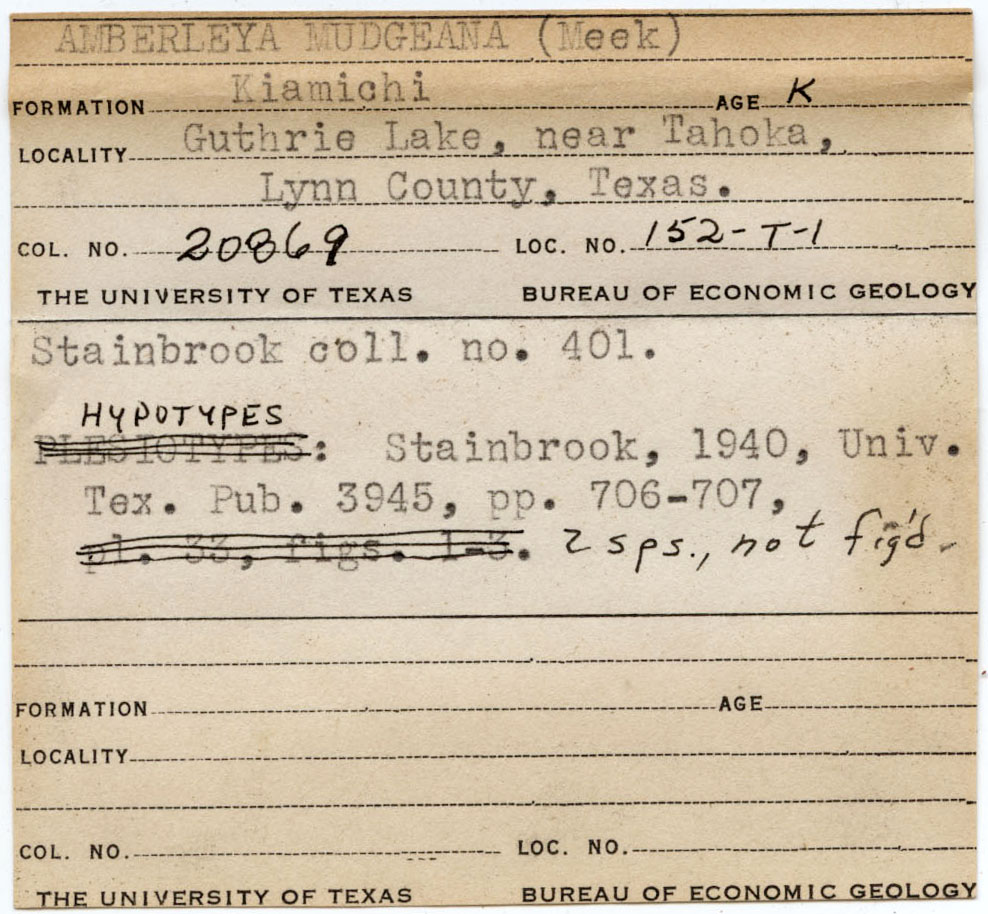 AMBERLEYA MUDGEANA (Meek)
FORMATION Kiamichi AGE K
LOCALITY Guthrie Lake, near Tahoka,
Lynn County, Texas.
COL. NO. 20869 LOC. NO. 152-T-1
THE UNIVERSITY OF TEXAS BUREAU OF ECONOMIC GEOLOGY
Stainbrook coll. no. 401.
HYPOTYPES
PLESIOTYPES: Stainbrook, 1940, Univ.
Tex. Pub. 3945, pp. 706-707,
pl. 33, figs. 1-3. 2 sps., not fig'd.
FORMATION AGE
LOCALITY
COL. NO. LOC. NO.
THE UNIVERSITY OF TEXAS BUREAU OF ECONOMIC GEOLOGY